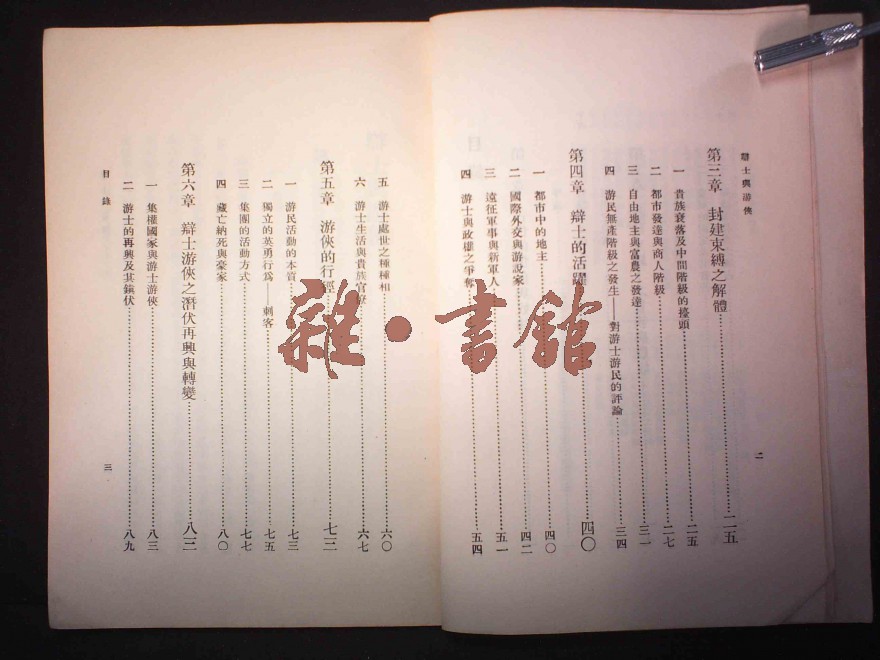 辯士與游俠
第三章 封建束縛之解體……二五
一 貴族衰落及中間階級的擡頭……二五
二 都市發達與商人階級……二七
三 自由地主與富農之發達……三一
四 游民無產階級之發生——對游士游民的評論……三四
第四章 辯士的活躍……四〇
一 都市中的地主……四〇
二 國際外交與游說家……四二
三 遠征軍事與新軍人……五一
四 游士與政權之爭奪……五四
二
五 游士處世之種種相……六〇
六 游士生活與貴族官僚……六七
第五章 游俠的行徑……七三
一 游民活動的本質……七三
二 獨立的英勇行為——刺客……七五
三 集團的活動方式……七七
四 藏亡納死與豪家……八〇
第六章 辯士游俠之潛伏再興與轉變……八三
一 集權國家與游士游俠……八三
二 游士的再興及其鎮伏……八九
目錄
三
雜·書館